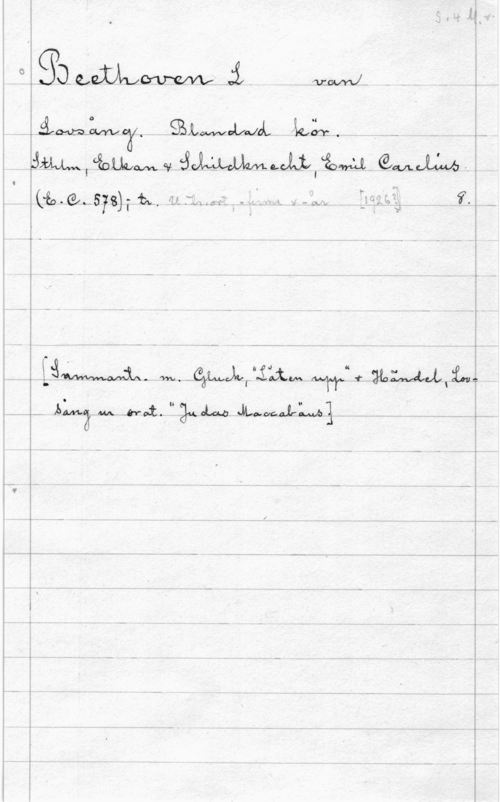 S. 4 bl. v.
Beethoven L van
Lovsång. Blandad kör.
Sthlm, Elkan & Schildknecht, Emil Carelius
(E. C. 578); tr. u. tr.ort, -firma & år [1926?] 8.
[Sammantr. m. Gluck, "Låten upp" & Händel, Lov-
sång ur orat. "Judas Maccabäus]